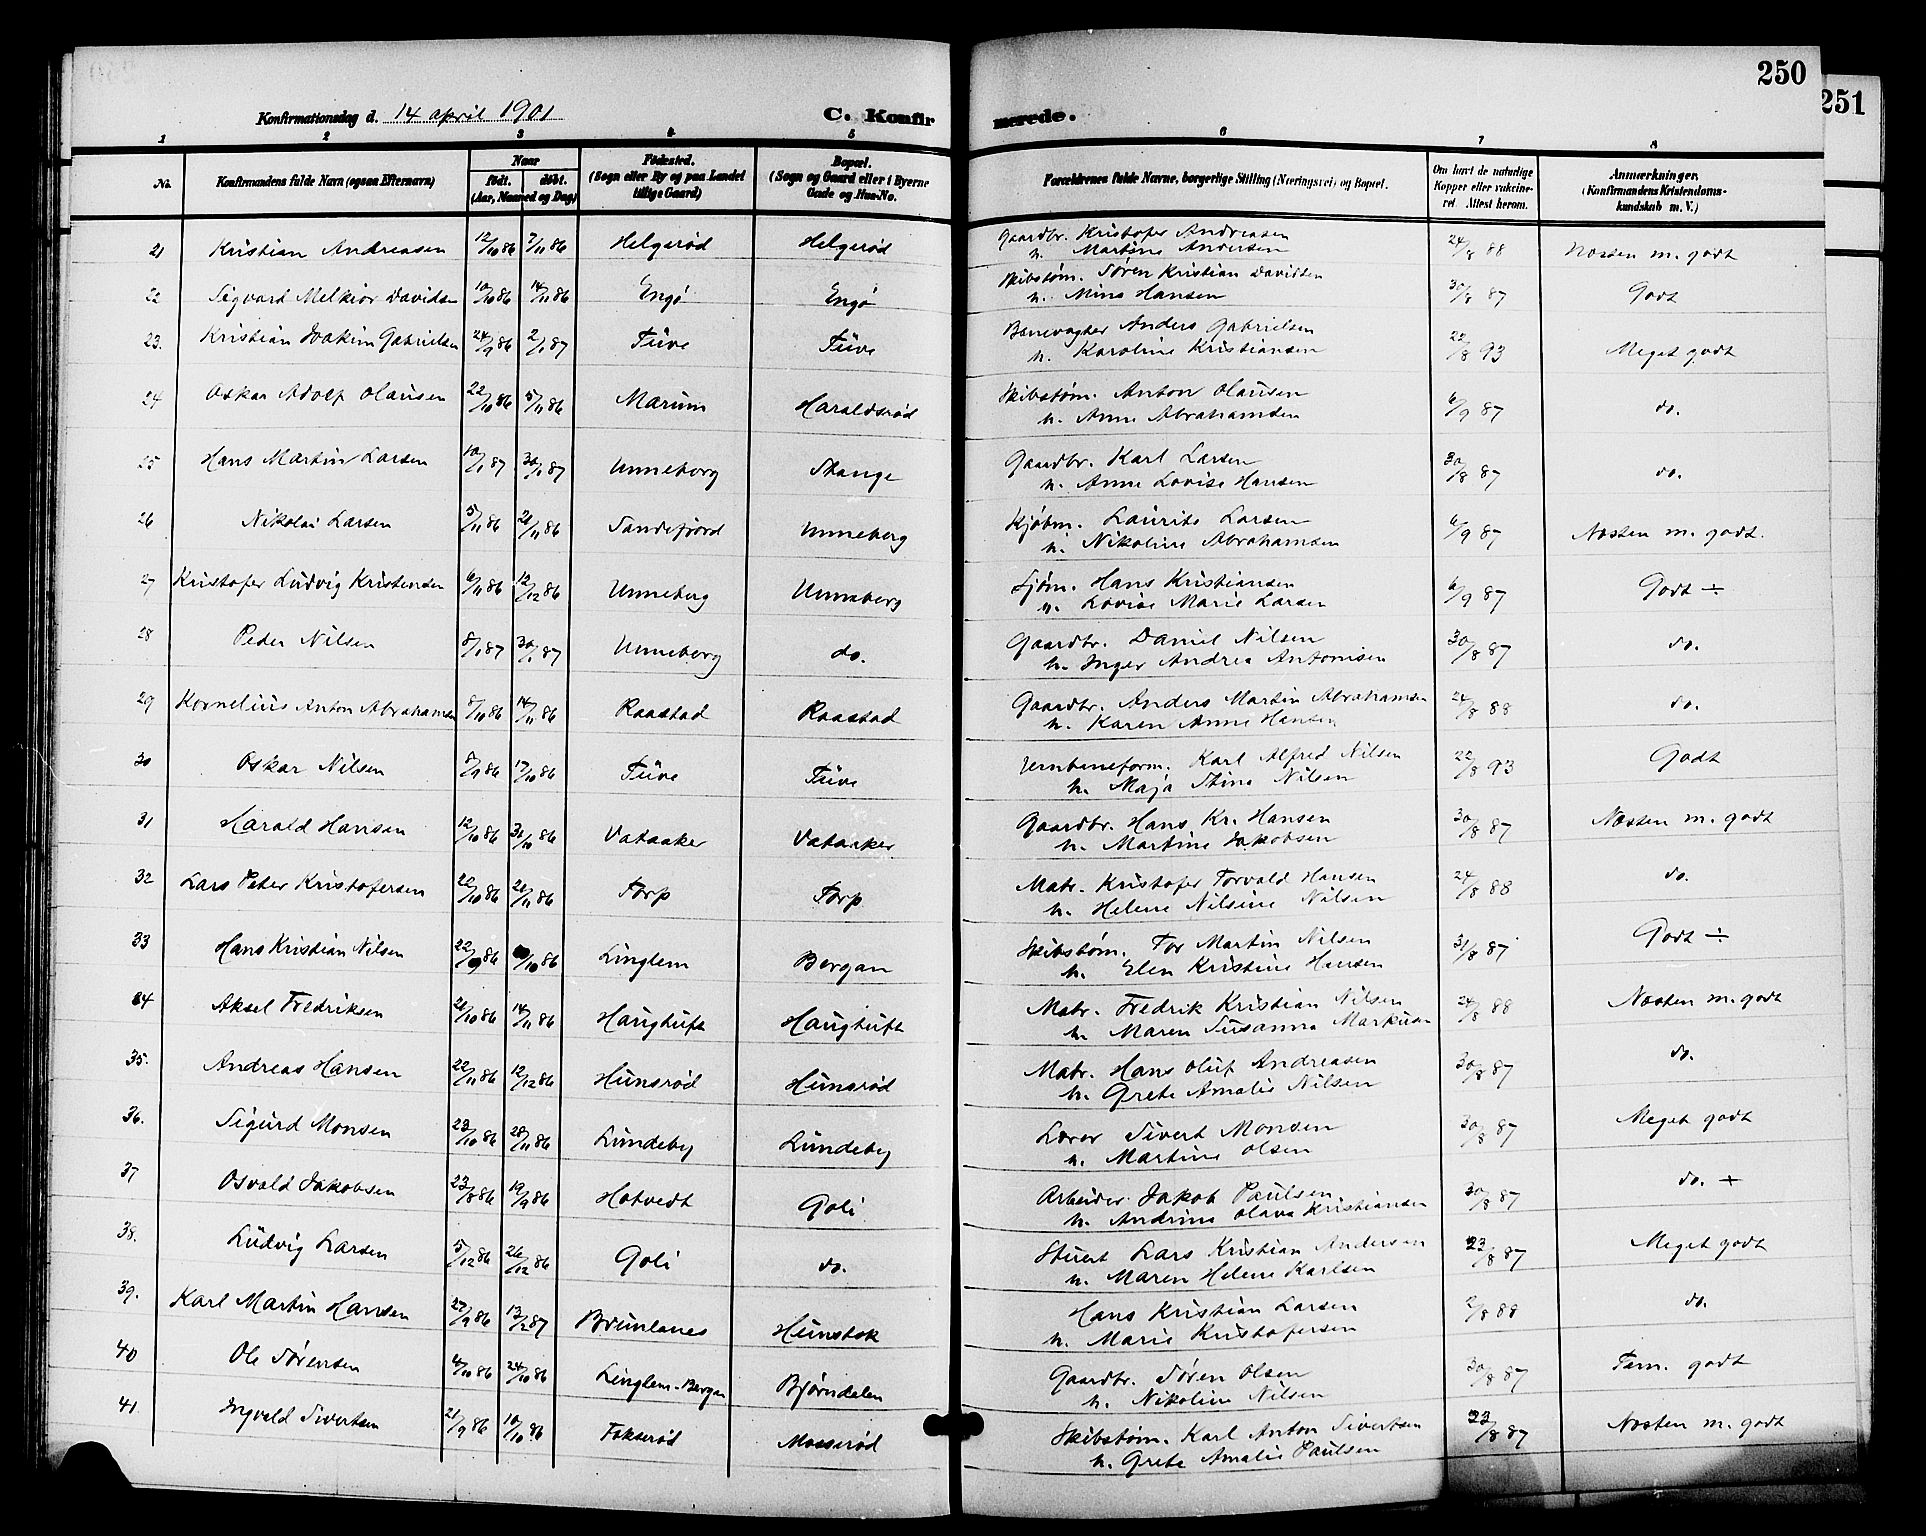 250
251
Konfirmationsdag d. 14 april 1901 C. Konfirmerede.
1 2 3 4 5 6 7 8
No. Konfirmandens fulde Navn (ogsaa Efternavn) Naar født. døbt. (Aar, Maaned og Dag) Fødested. (Sogn eller By og paa Landet tillige Gaard) Bopæl. (Sogn og Gaard eller i Byerne Gade og Hus-No. Forældrenes fulde Navne, borgerlige Stilling (Næringsvei) og Bopæl. Om havt de naturlige Kopper eller vakcineret. Attest herom. Anmærkninger. (Konfirmandens Kristendomskundskab m. V.)
21 Kristian Andreasen 12/10 86 7/11 86 Helgerød Helgerød Gaardbr. Kristofer Andreasen 24/8 88 Næsten m. godt
h. Martine Andersen
22 Sigvard Melkior Davidsen 10/10 86 14/11 86 Engø Engø Skibstøm. Søren Kristian Davidsen 30/8 87 Godt
h. Mina Hansen
23. Kristian Joakim Gabrielsen 24/9 86 2/1 87 Tuve Tuve Banevogter Anders Gabrielsen 22/8 93 Meget godt
h. Karoline Kristiansen
24 Oskar Adolf Olausen 22/10 86 5/11 86 Marum Haraldsrød Skibstøm. Anton Olausen 6/9 87 do.
h. Anne Abrahamsen
25 Hans Martin Larsen 10/1 87 30/1 87 Unneberg Stange Gaardbr. Karl Larsen 30/8 87 do.
h. Anne Lovise Hansen
26 Nikolai Larsen 5/11 86 21/11 86 Sandefjord Unneberg Kjøbm. Laurits Larsen 6/9 87 Næsten m. godt.
h. Nikoline Abrahamsen
27 Kristofer Ludvig Kristensen 6/11 86 12/12 86 Unneberg Unneberg Sjøm. Hans Kristiansen 6/9 87 Godt ÷
h. Lovise Marie Larsen
28 Peder Nilsen 8/1 87 30/1 87 Unneberg do. Gaardbr. Daniel Nilsen 30/8 87 do.
h. Inger Andrea Antonisen
29 Kornelius Anton Abrahamsen 8/10 86 14/11 86 Raastad Raastad Gaardbr. Anders Martin Abrahamsen 24/8 88 do.
h. Karen Anne Hansen
30 Oskar Nilsen 8/9 86 17/10 86 Tuve Tuve Jernbaneform. Karl Alfred Nilsen 22/8 93 Godt
h. Maja Stina Nilsen
31 Harald Hansen 12/10 86 31/10 86 Vataaker Vataaker Gaardbr. Hans Kr. Hansen 30/8 87 Næsten m. godt
h. Martine Jakobsen
32 Lars Peter Kristofersen 22/10 86 21/11 86 Torp Torp Matr. Kristofer Torvald Hansen 24/8 88 do.
h. Helene Nilsine Nilsen
33 Hans Kristian Nilsen 22/9 86 /10 86 Linglem Bergan Skibstøm. Tor Martin Nilsen 31/8 87 Godt ÷
h. Elen Kristine Hansen
34 Aksel Fredriksen 21/10 86 14/11 86 Haughuft Haughuft Matr. Fredrik Kristian Nilsen 24/8 88 Næsten m. godt
h. Maren Susanna Markusen
35. Andreas Hansen 22/11 86 12/12 86 Hunsrød Hunsrød Matr. Hans Oluf Andreasen 30/8 87 do.
h. Grete Amalie Nilsen
36. Sigurd Monsen 23/10 86 28/11 86 Lundeby Lundeby Lærer Sivert Monsen 30/8 87 Meget godt
h. Martine Olsen
37 Osvald Jakobsen 23/8 86 19/9 86 Hotvedt Goli Arbeider Jakob Paulsen 30/8 87 do. +
h. Andrine Olava Kristiansen
38. Ludvig Larsen 5/12 86 26/12 86 Goli do. Stuert Lars Kristian Andersen 23/8 87 Meget godt
h. Maren Helene Karlsen
39. Karl Martin Hansen 27/9 86 13/2 87 Brunlanes Hunstok Hans Kristian Larsen 2/8 88 do.
h. Marie Kristofersen
40 Ole Sørensen 4/10 86 24/10 86 Linglem-Bergan Bjørndalen Gaardbr. Søren Olsen 30/8 87 Tem. godt
h. Nikoline Nilsen
41 Ingvald Sivertsen 21/9 86 10/10 86 Fokserød Mosserød Skibstøm. Karl Anton Sivertsen 23/8 87 Næsten m. godt
h. Grete Amalie Paulsen